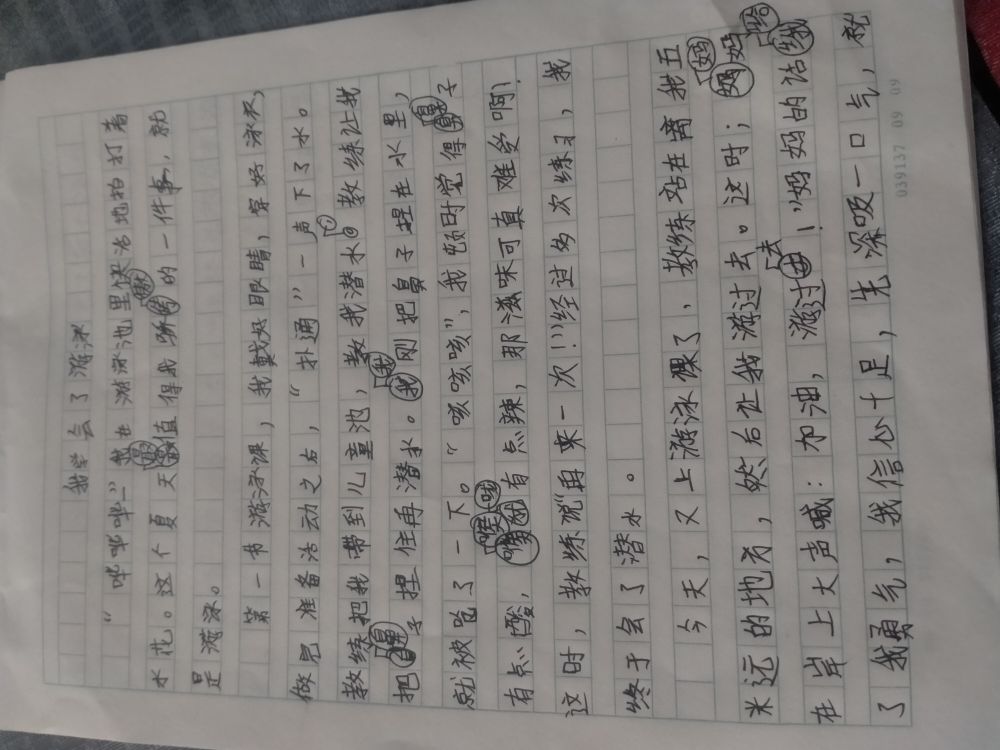 我学会了游泳
“哗哗哗”我在游泳池里快活地拍打着
水花。这个夏天最值得我骄傲的一件事，就
是游泳。
第一节游泳课，我戴好眼睛，穿好泳衣，
做完准备活动之右，“扑通”一声下了水。
教练把我带到儿童池，教我潜水。教练让我
把鼻子捏住再潜水。我刚把鼻子捏在水里，
就被呛了一下。“咳咳咳”，我顿时觉得鼻子
有点酸，喉咙有点辣，那滋味可真难受啊！
这时，教练说再来一次！”经过多次练习，我
终于会了潜水。
今天，又上游泳课了，教练站在离我五
米远的地方，然后让我游过去。这时；妈妈
在岸上大声喊：加油，游过去！”妈妈的话给
了我勇气，我信心十足，先深吸一口气，
039137 09 09